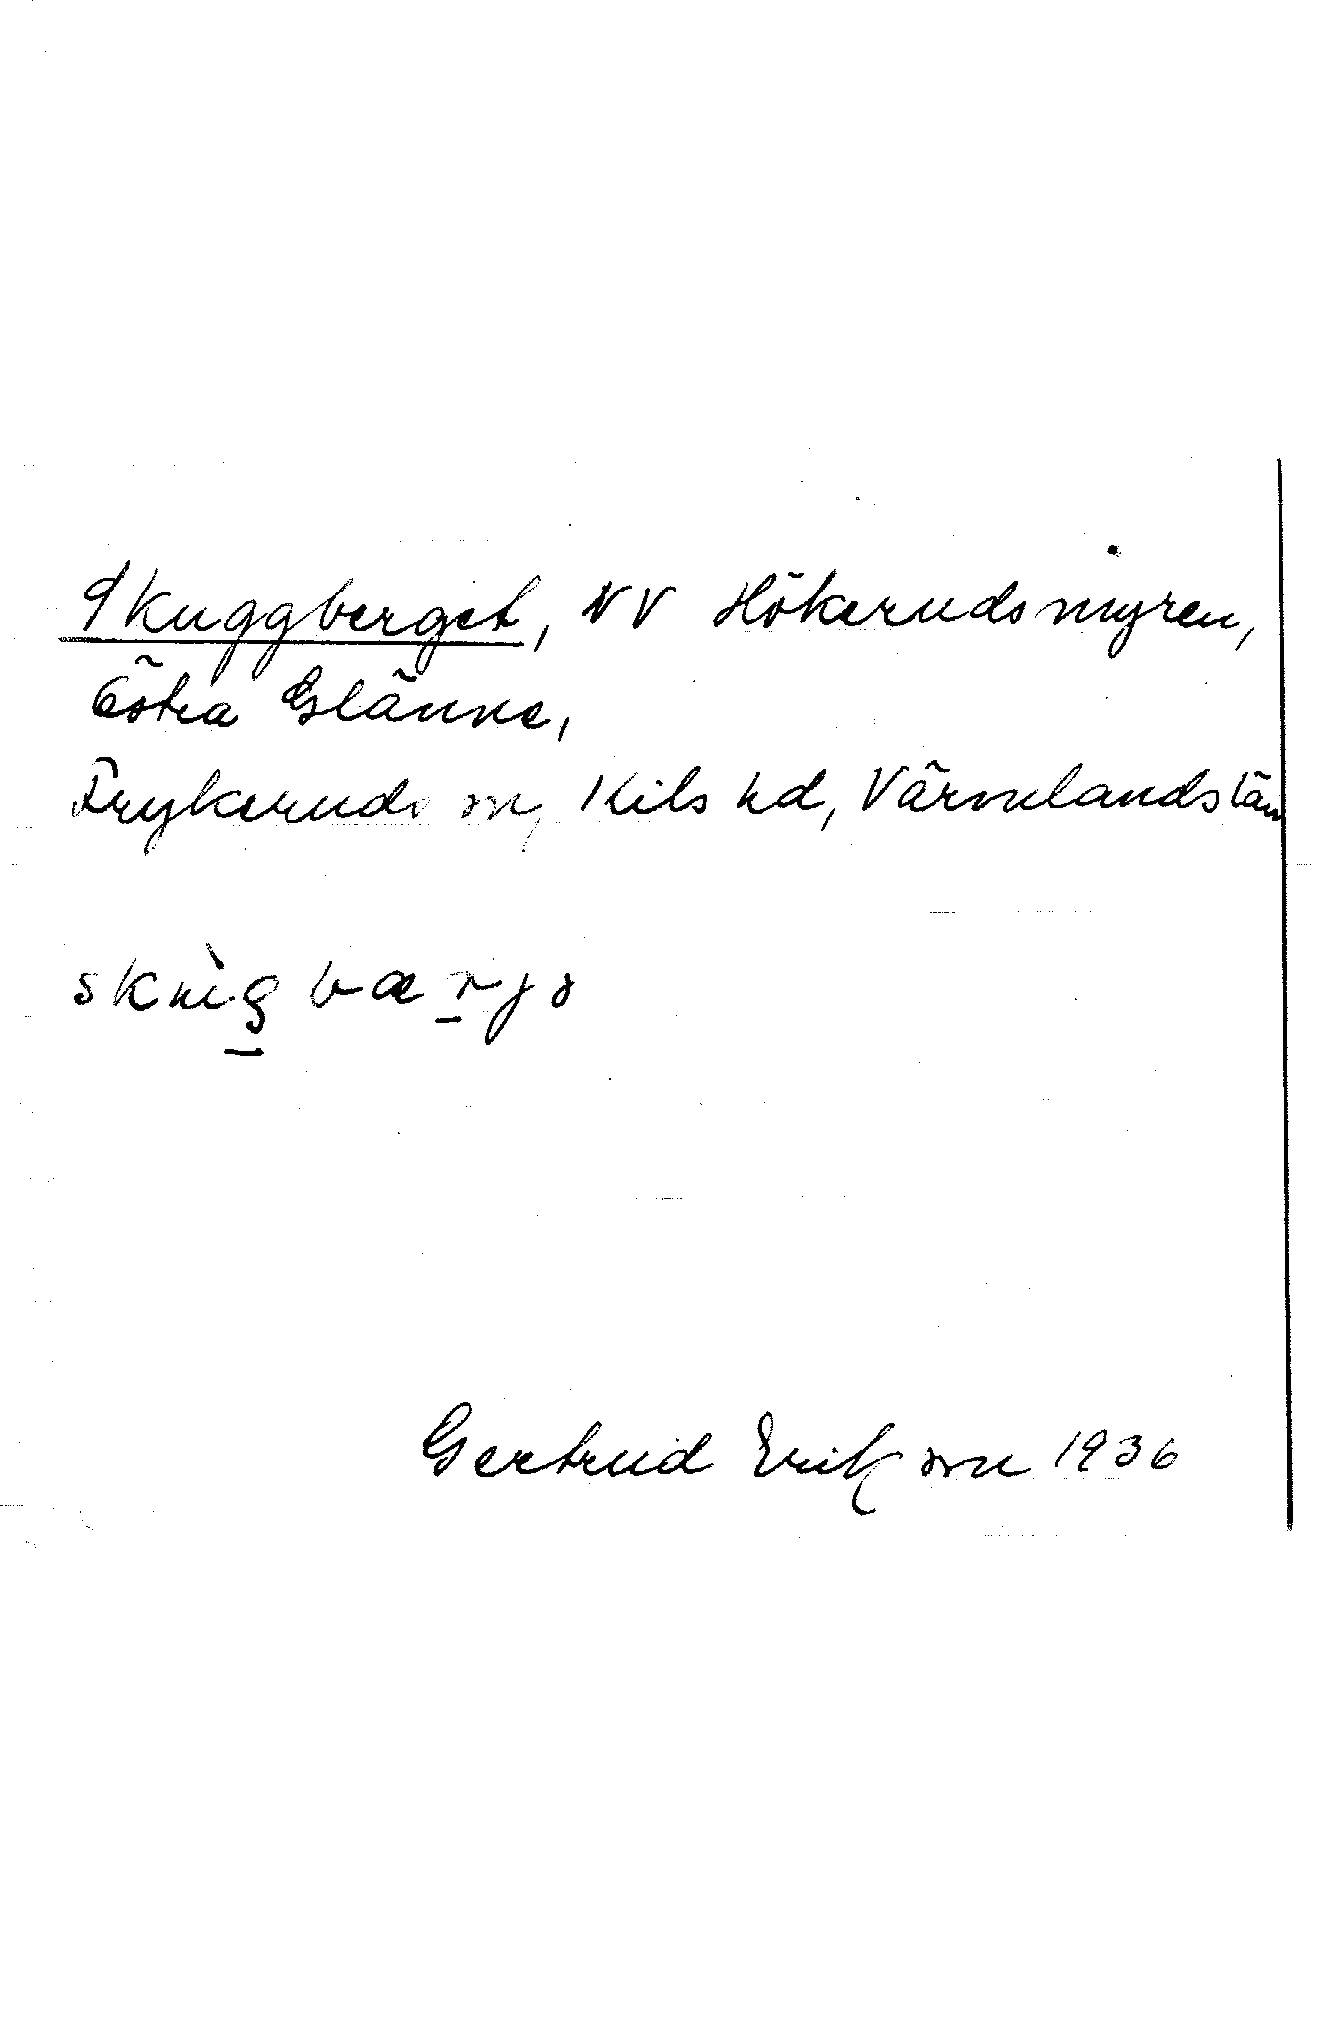 Skuggberget, NV Hökerudsmyren,
Östra Glänne,
Frykeruds sn, Kils hd, Värmlands län
skùg bærjə
Gertrud Erikson 1936